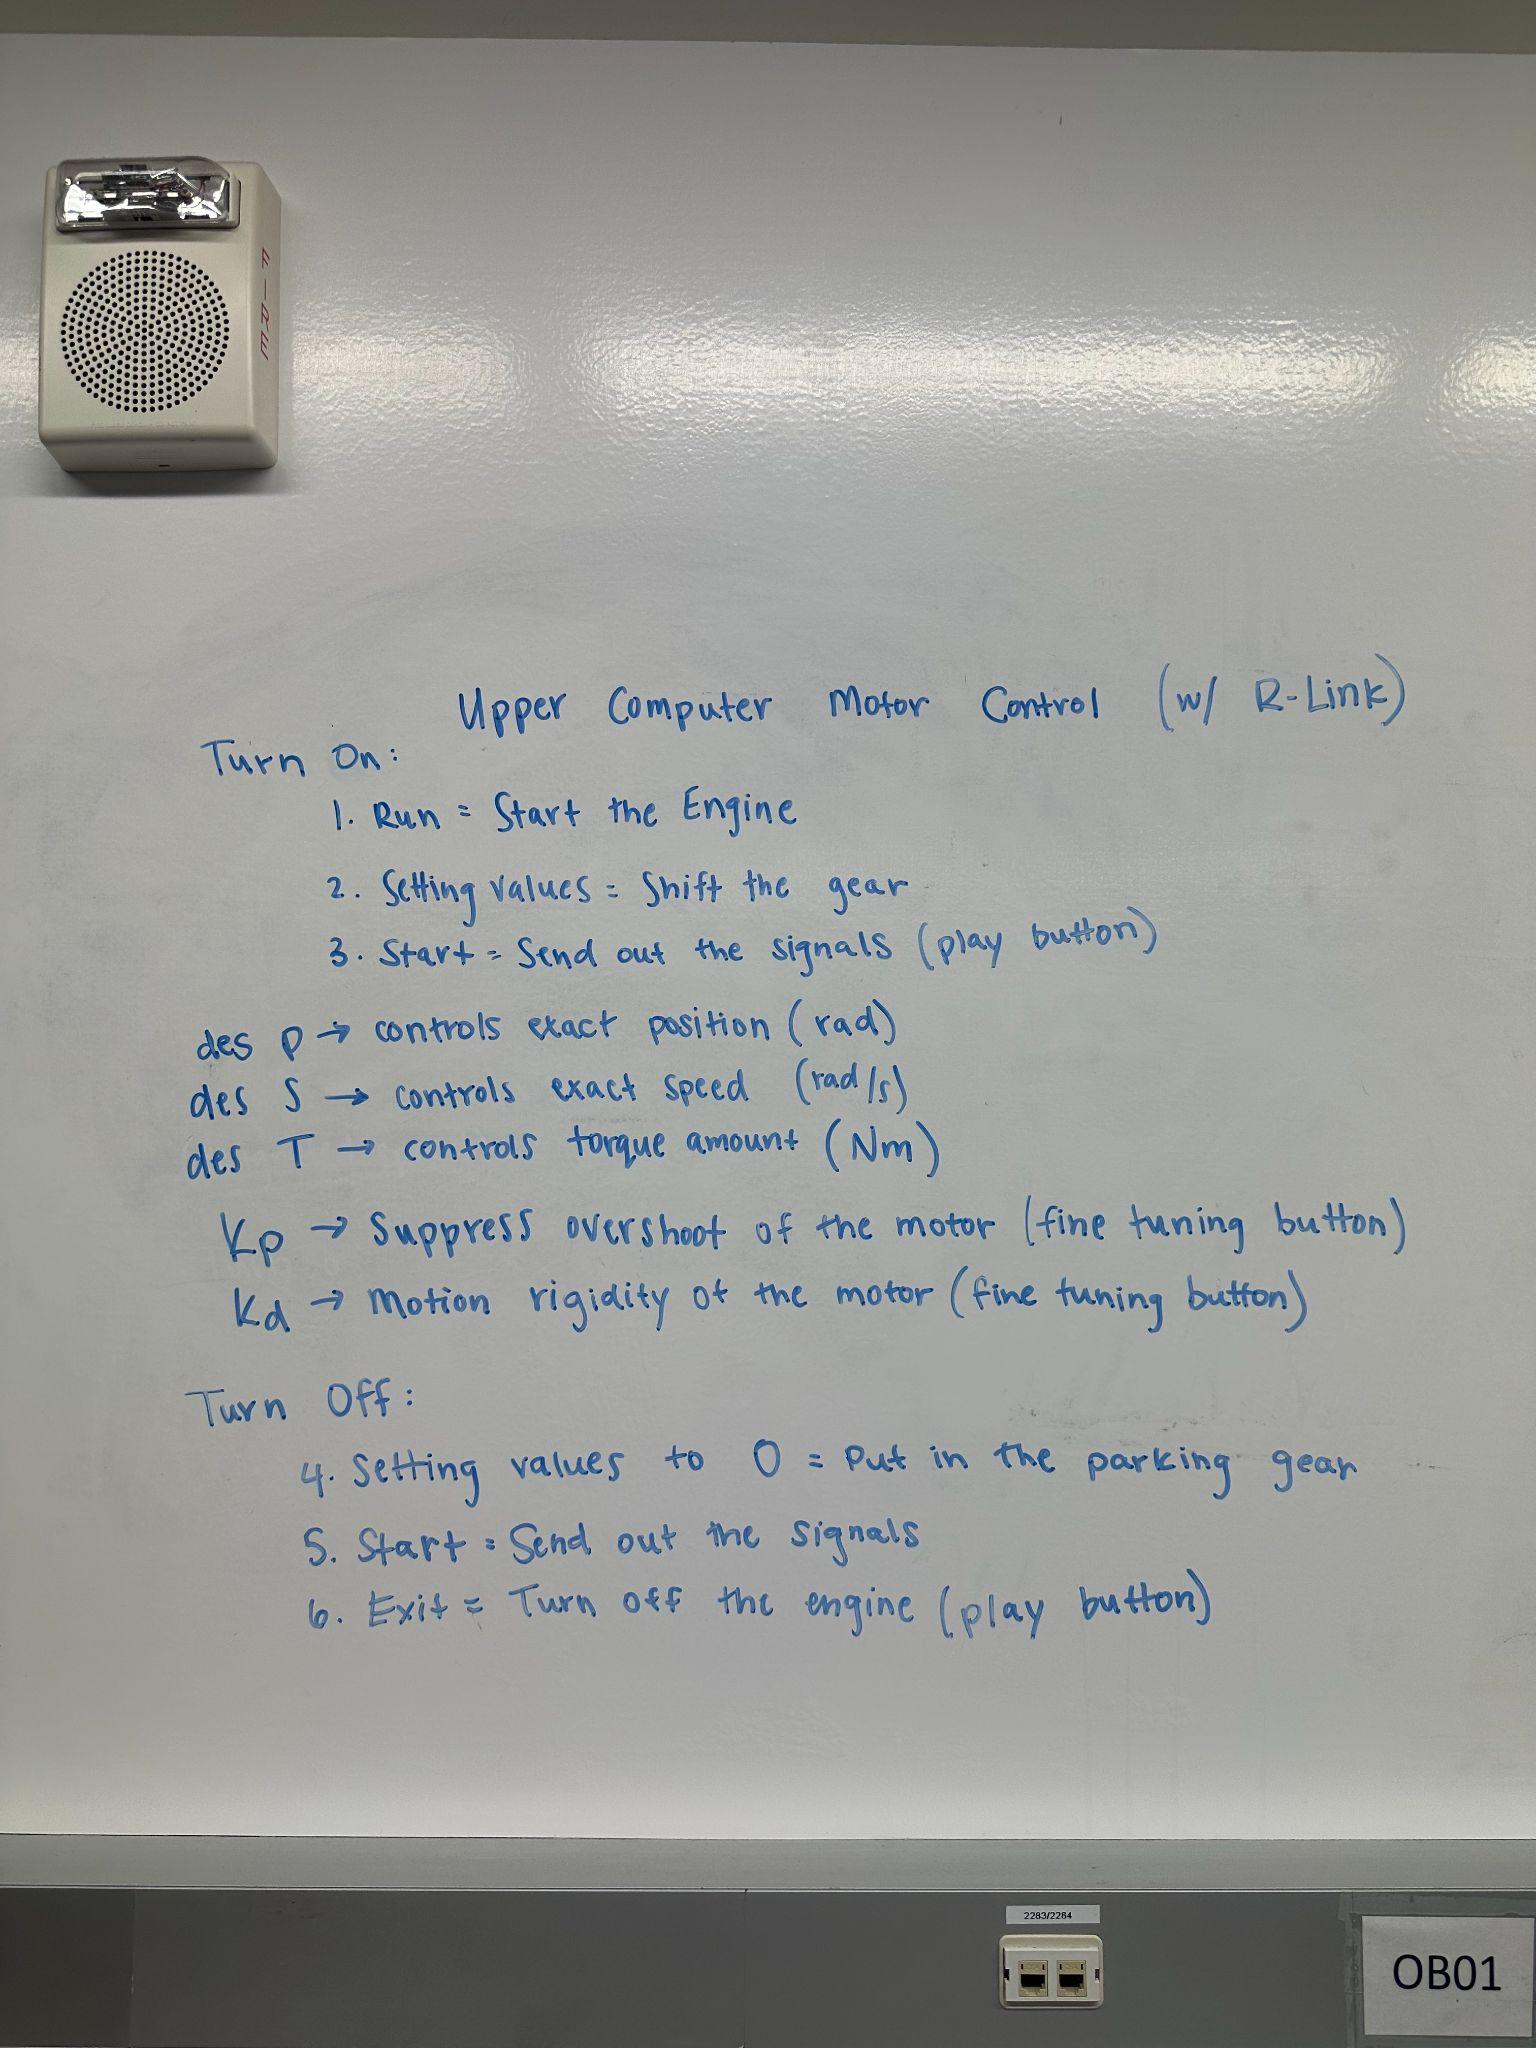 FIRE
Upper Computer Motor Control (w/ R-Link)
Turn On:
1. Run = Start the Engine
2. Setting values = Shift the gear
3. Start = Send out the signals (play button)
des p → controls exact position (rad)
des S → controls exact speed (rad/s)
des T → controls torque amount (Nm)
Kp → Suppress overshoot of the motor (fine tuning button)
Kd → Motion rigidity of the motor (fine tuning button)
Turn Off:
4. Setting values to 0 = Put in the parking gear
5. Start = Send out the signals
6. Exit = Turn off the engine (play button)
2283/2284
OB01